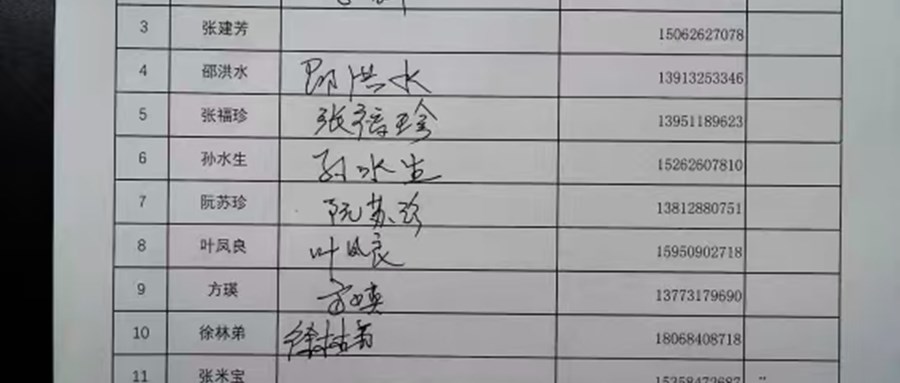 3 张建芳 15062627078
4 邵洪水 邵洪水 13913253346
5 张福珍 张福珍 13951189623
6 孙水生 孙水生 15262607810
7 阮苏珍 阮苏珍 13812880751
8 叶凤良 叶凤良 15950902718
9 方瑛 方瑛 13773179690
10 徐林弟 18068408718
11 张米宝